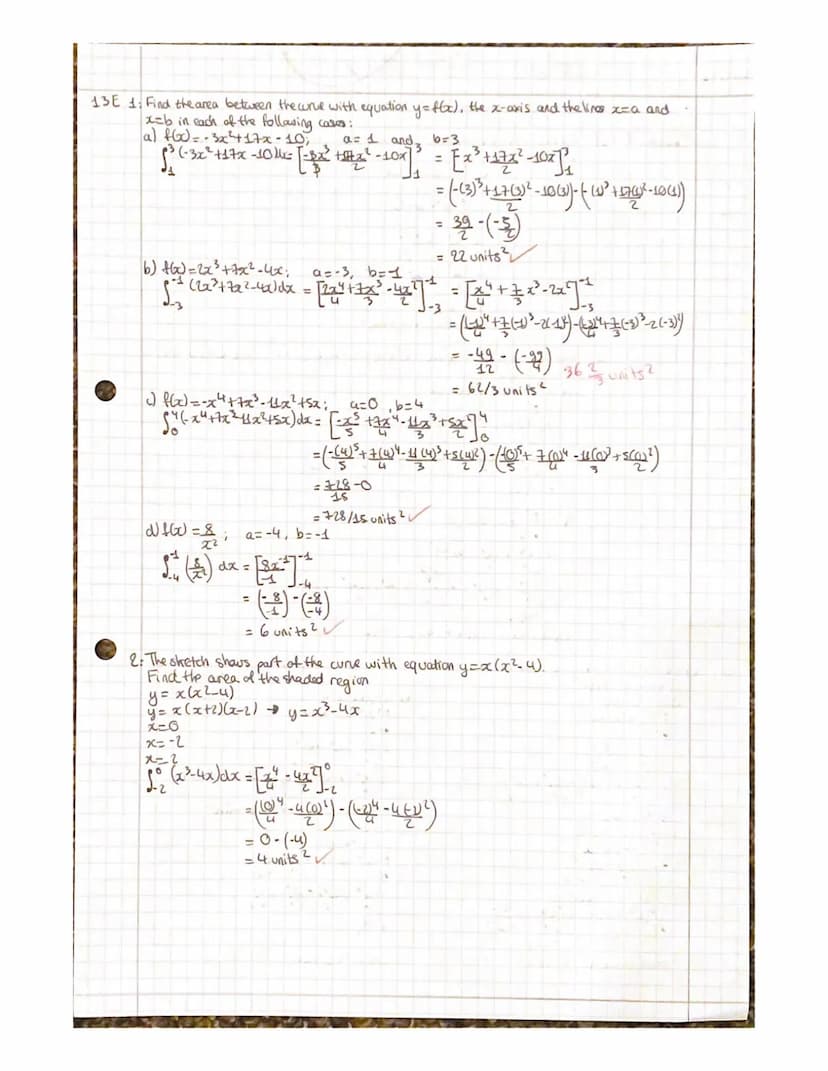 13E 1: Find the area between the curve with equation y=f(x), the x-axis and the lines x=a and
x=b in each of the following cases:
a) f(x)=-3x²+17x-10; a=1 and b=3
∫₁³(-3x²+17x-10)dx=[-3x³/3+17x²/2-10x]₁³ = [-x³+17x²/2-10x]₁³
=(-(3)³+17(3)²/2-10(3))-(-(1)³+17(1)²/2-10(1))
= 39/2-(-5/2)
= 22 units² ✓
b) f(x)=2x³+7x²-4x; a=-3, b=-1
∫₋₃⁻¹(2x³+7x²-4x)dx=[2x⁴/4+7x³/3-4x²/2]₋₃⁻¹ =[x⁴/4+7/3x³-2x²]₋₃⁻¹
=((-1)⁴/4+7/3(-1)³-2(-1)²)-((-3)⁴/4+7/3(-3)³-2(-3)²)
= -49/12-(-99/4)
= 62/3 units² 36 2/3 units²
c) f(x)=-x⁴+7x³-11x²+5x; a=0, b=4
∫₀⁴(-x⁴+7x³-11x²+5x)dx=[-x⁵/5+7x⁴/4-11x³/3+5x²/2]₀⁴
=(-(4)⁵/5+7(4)⁴/4-11(4)³/3+5(4)²/2)-(-(0)⁵/5+7(0)⁴/4-11(0)³/3+5(0)²/2)
=728/15-0
=728/15 units² ✓
d) f(x)=8/x²; a=-4, b=-1
∫₋₄⁻¹(8/x²)dx=[8x⁻¹/-1]₋₄⁻¹
=(-8/-1)-(-8/-4)
= 6 units² ✓
2: The sketch shows part of the curve with equation y=x(x²-4).
Find the area of the shaded region
y= x(x²-4)
y= x(x+2)(x-2) → y=x³-4x
x=0
x=-2
x=2
∫₋₂⁰(x³-4x)dx=[x⁴/4-4x²/2]₋₂⁰
=((0)⁴/4-4(0)²/2)-((-2)⁴/4-4(-2)²/2)
= 0-(-4)
=4 units² ✓